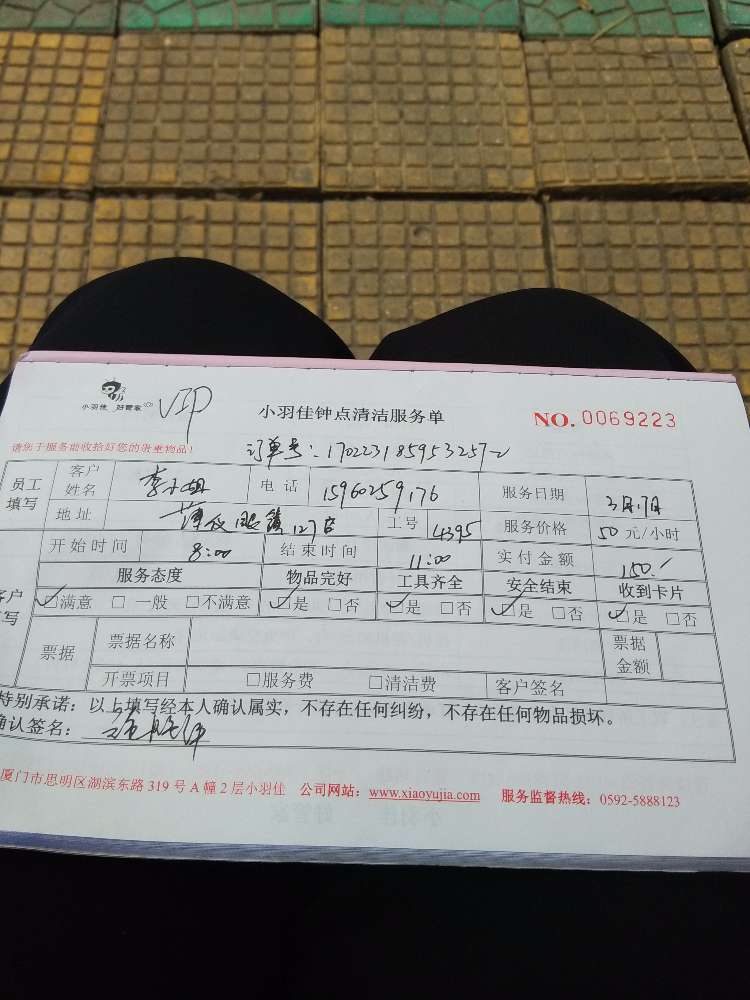 小羽佳 好管家
VIP
小羽佳钟点清洁服务单
NO. 0069223
请您于服务前收拾好您的贵重物品!
订单号: 170223185953257-2
员工填写 客户姓名 李小姐 电话 15960259176 服务日期 3月.7日
地址 眼镜127店 工号 4395 服务价格 50元/小时
开始时间 8:00 结束时间 11:00 实付金额 150.
客户填写 服务态度 物品完好 工具齐全 安全结束 收到卡片
☑满意 □一般 □不满意 ☑是 □否 ☑是 □否 ☑是 □否 ☑是 □否
票据 票据名称 票据金额
开票项目 □服务费 □清洁费 客户签名
特别承诺:以上填写经本人确认属实,不存在任何纠纷,不存在任何物品损坏。
确认签名:
厦门市思明区湖滨东路 319 号 A 幢 2 层小羽佳 公司网站:www.xiaoyujia.com 服务监督热线:0592-5888123